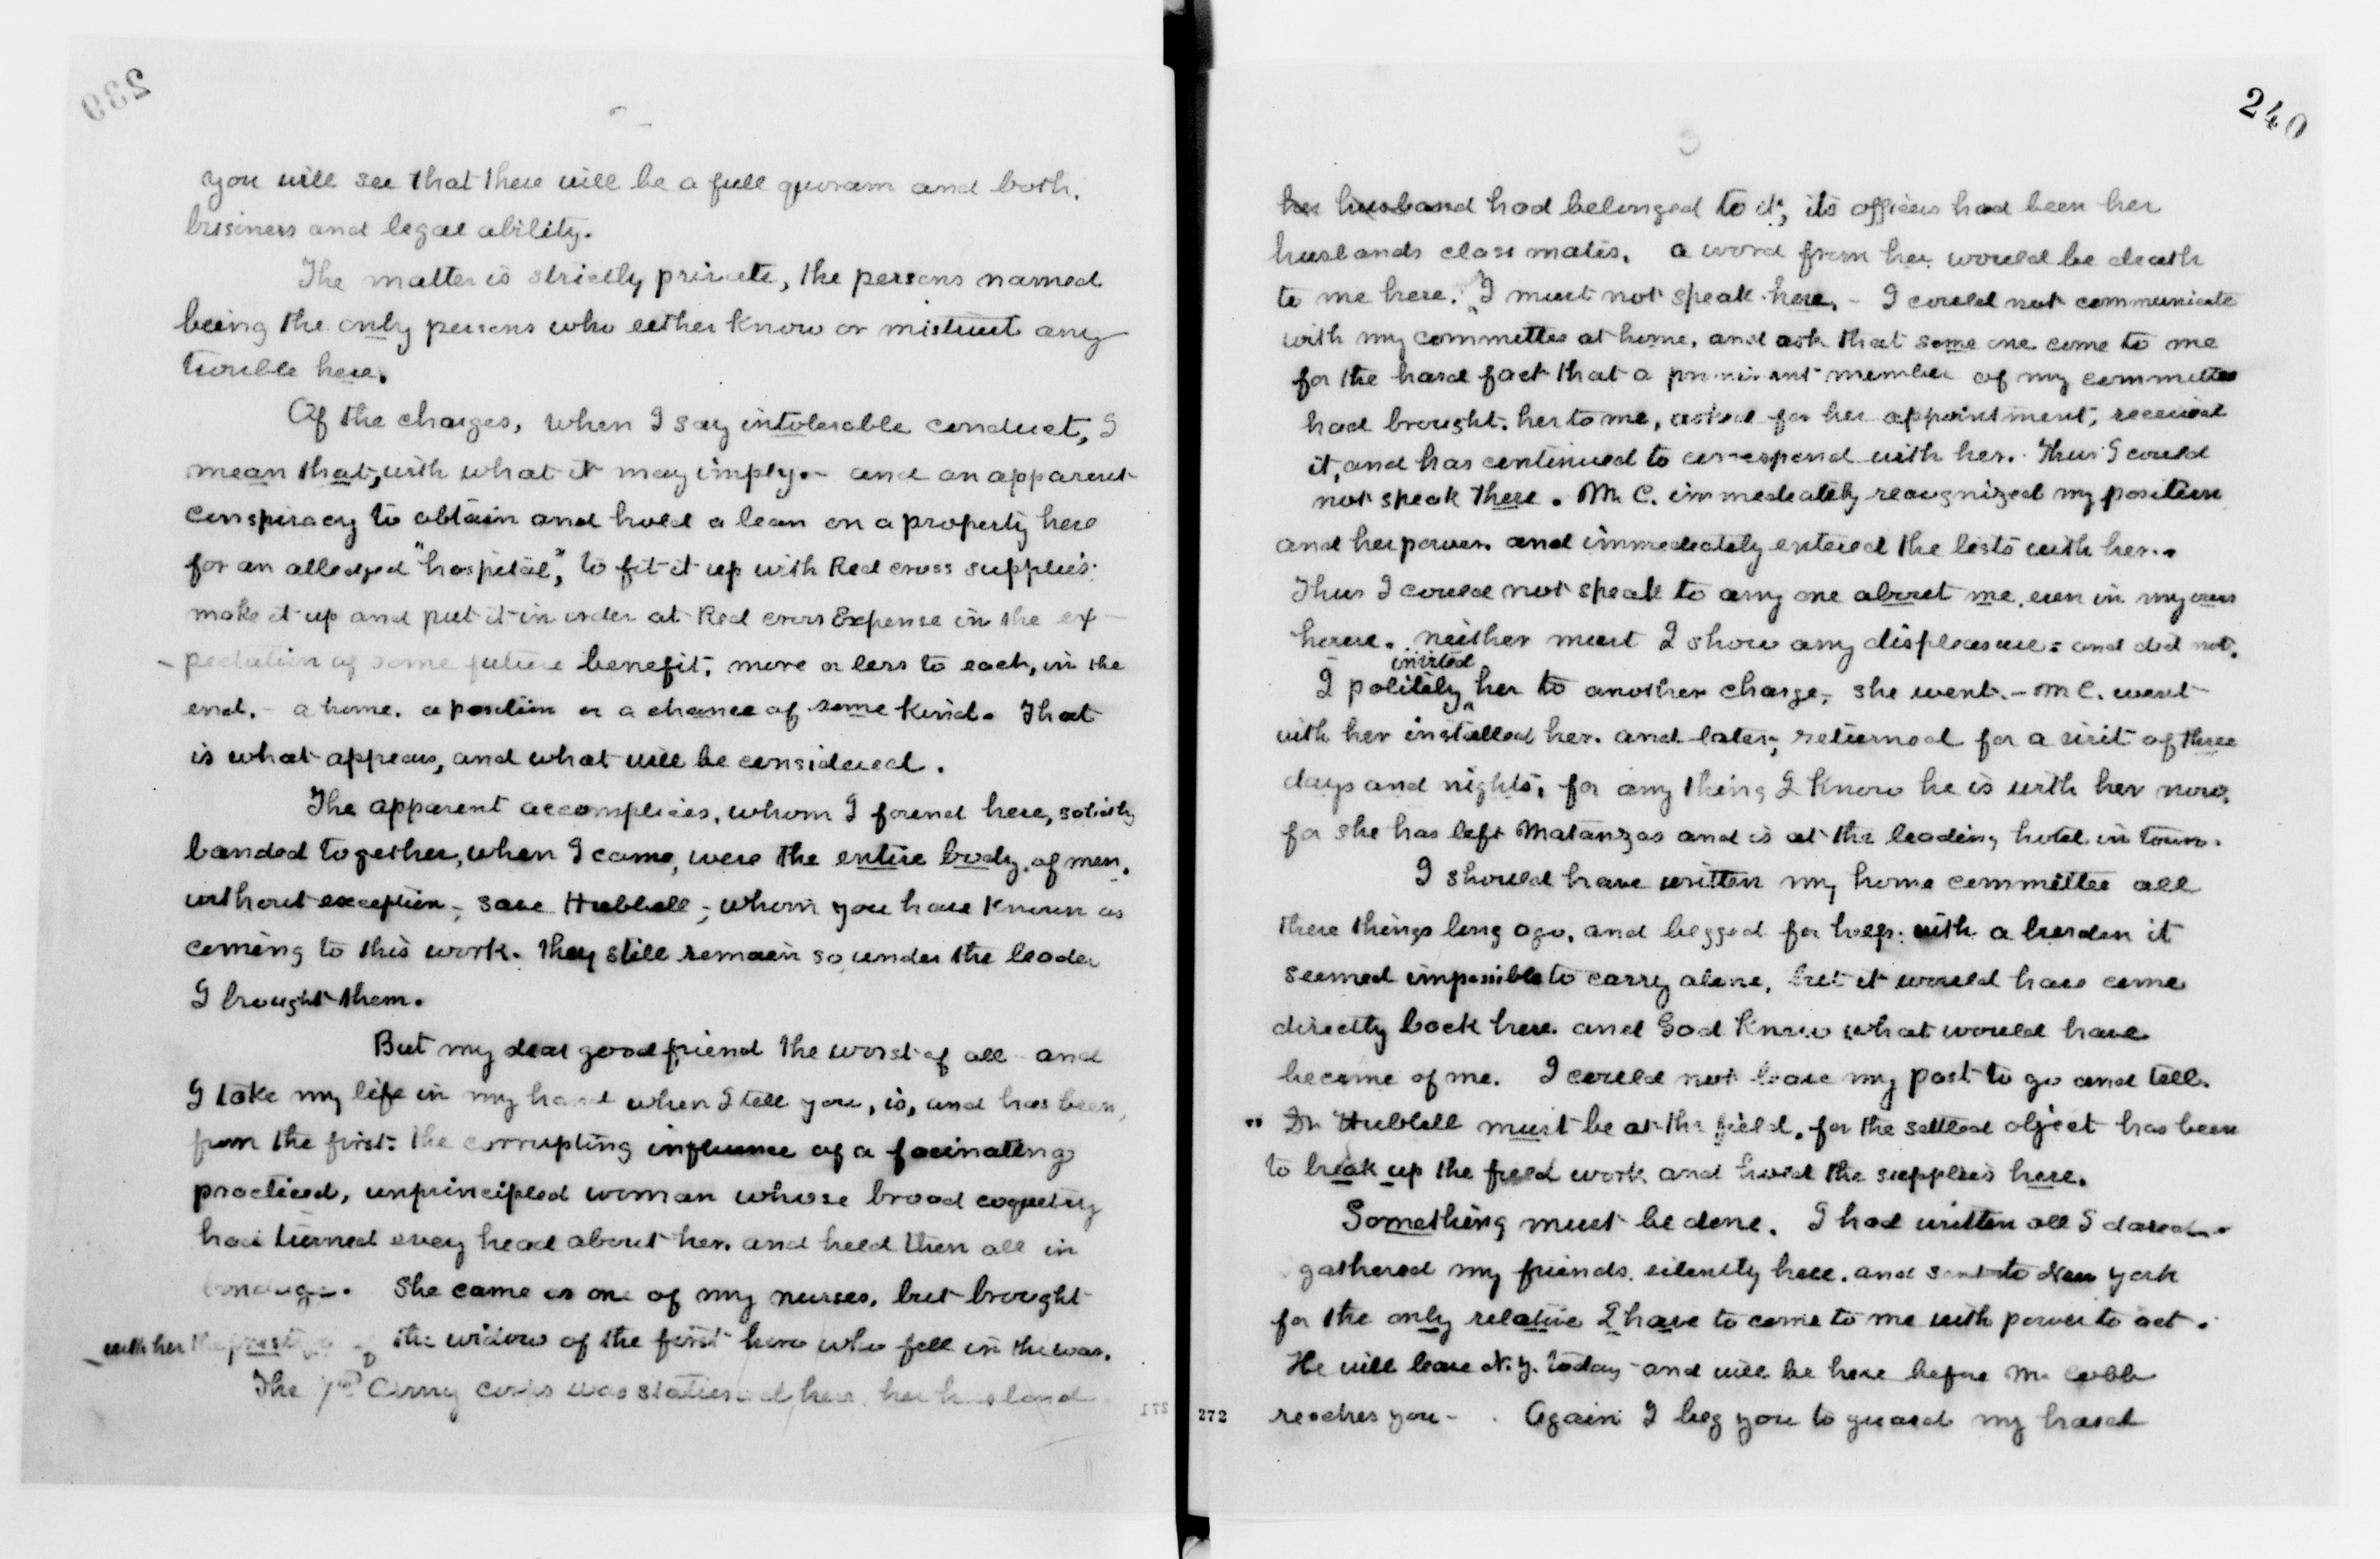 239
2
you will see that there will be a full quoram and both
business and legal ability.
The matter is strictly private, the persons named
being the only persons who either know or mistrust any
trouble here.
Of the charges, when I say intolerable conduct, I
mean that, with what it may imply. - and an apparent
conspiracy to obtain and hold a lean on a property here
for an alledged "hospital", to fit it up with Red cross supplies.
make it up and put it in order at Red cross Expense in the ex-
pectation of some future benefit, more or less to each, in the
end, - a home, a position or a chance of some kind. That
is what appears, and what will be considered.
The apparent accomplices, whom I found here, solidly
banded together, when I came, were the entire body of men,
without exception, save Hubbell, whom you have known as
coming to this work. They still remain so under the leader
I brought them.
But my dear good friend the worst of all - and
I take my life in my hand when I tell you, is, and has been,
from the first: the corrupting influence of a facinating
practiced, unprincipled woman whose broad coquetry
had turned every head about her, and held them all in
bondage. She came as one of my nurses, but brought
with her the prestige of the widow of the first hero who fell in the war.
The 7th Army corps was stationed here, her husband
271
240
3
her husband had belonged to it, its officers had been her
husbands class mates. a word from her would be death
to me here. I must not speak here. - I could not communicate
with my committee at home, and ask that some one come to me
for the hard fact that a prominent member of my committee
had brought her to me, asked for her appointment, received
it, and has continued to correspond with her. Thus I could
not speak there. Mr C. immediately recognized my position
and her power, and immediately entered the lists with her.
Thus I could not speak to any one about me, even in my own
house. neither must I show any displeasure = and did not.
invited
I politely her to another charge, she went. - Mr C. went
with her installed her. and later, returned for a visit of three
days and nights, for any thing I know he is with her now,
for she has left Matanzas and is at the leading hotel in town.
I should have written my home committee all
these things long ago, and begged for help with a burden it
seemed impossible to carry alone, but it would have come
directly back here. and God knew what would have
become of me. I could not leave my post to go and tell.
" Dr Hubbell must be at the field, for the settled object has been
to break up the field work and hold the supplies here.
Something must be done. I had written all I dared.
gathered my friends silently here, and sent to New York
for the only relative I have to come to me with power to act.
He will leave N.Y. today - and will be here before Mr Cobb
272 reaches you - . Again I beg you to guard my hard